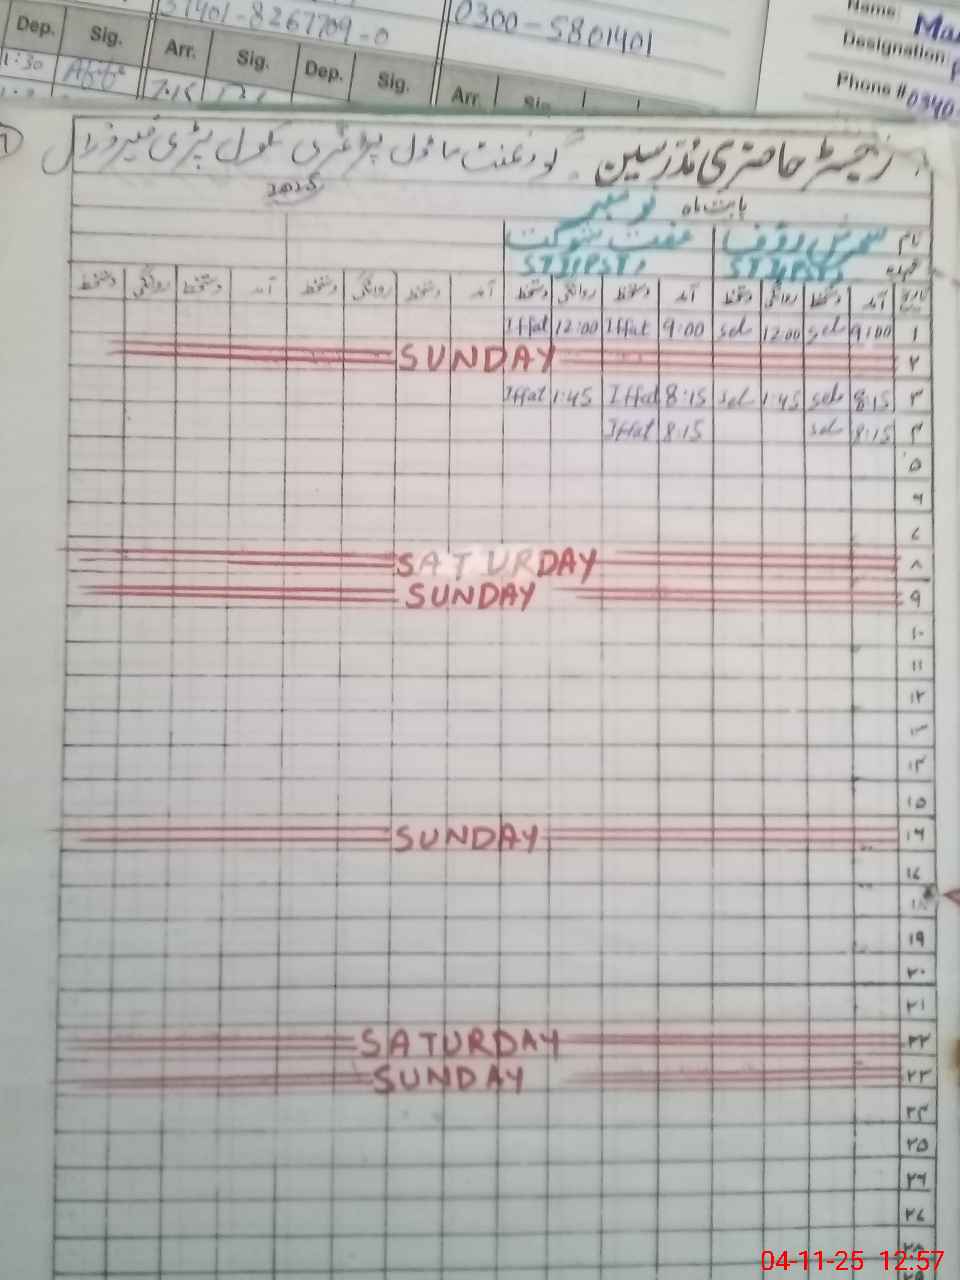 31401-8267709-0 0300-5801401
Name
Designation
Phone # 0340-
Dep. Sig. Arr. Sig. Dep. Sig. Arr.
1:30 7:15
رجسٹر حاضری مدرسین گورنمنٹ ماڈل پرائمری سکول پڑی
2025
بابت ماہ نومبر
نام سحرش رؤف عفت شوکت
عہدہ
تاریخ آمد دستخط روانگی دستخط آمد دستخط روانگی دستخط آمد دستخط روانگی دستخط آمد دستخط روانگی دستخط
۱ 9:00 sel 12:00 sel 9:00 Iffat 12:00 Iffat
۲ SUNDAY
۳ 8:15 sel 1:45 sel 8:15 Iffat 1:45 Iffat
۴ 8:15 sel 8:15 Iffat
۵
۶
۷
۸ SATURDAY
۹ SUNDAY
۱۰
۱۱
۱۲
۱۳
۱۴
۱۵
۱۶ SUNDAY
۱۷
۱۸
۱۹
۲۰
۲۱
۲۲ SATURDAY
۲۳ SUNDAY
۲۴
۲۵
۲۶
۲۷
۲۸
04-11-25 12:57